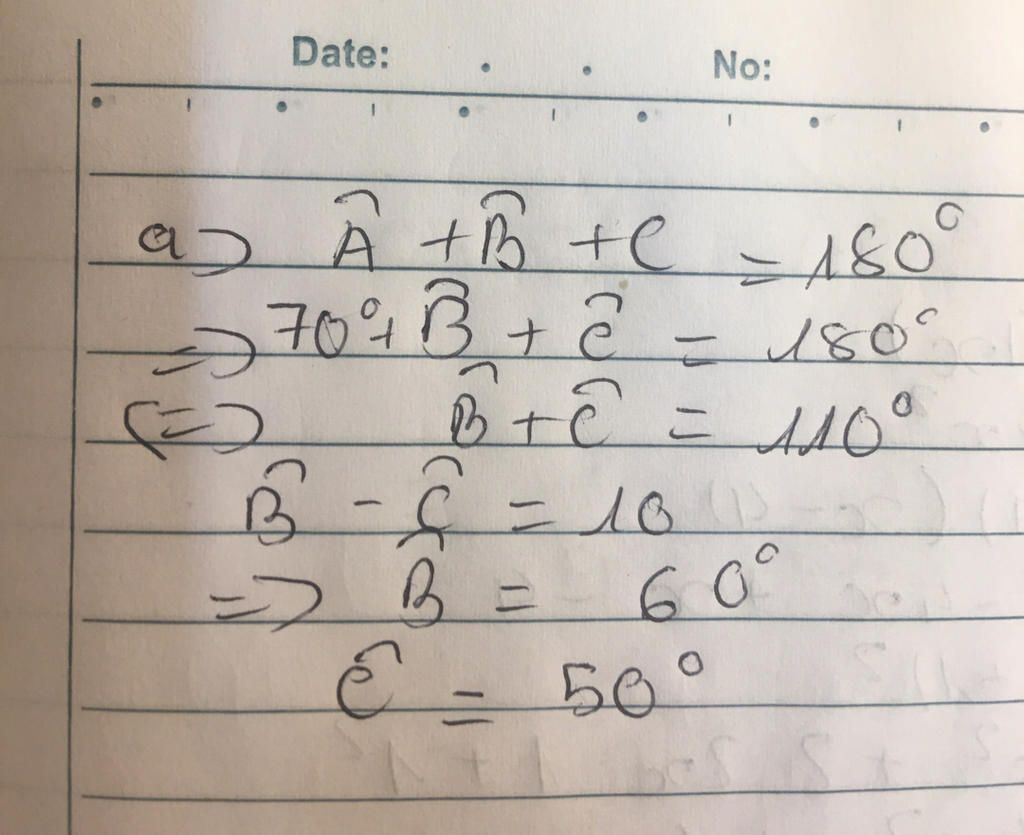 Date: No:
a) Â + B̂ + C = 180°
=> 70° + B̂ + Ĉ = 180°
<=> B̂ + Ĉ = 110°
B̂ - Ĉ = 10
=> B̂ = 60°
Ĉ = 50°